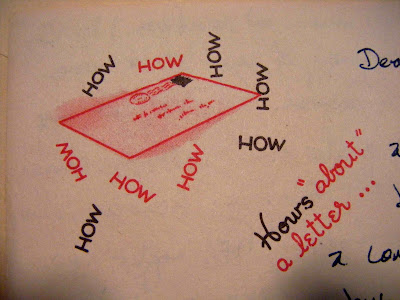 HOW
HOW
HOW
HOW
HOW
HOW
HOW
HOW
HOW
Hows "about"
a letter ...